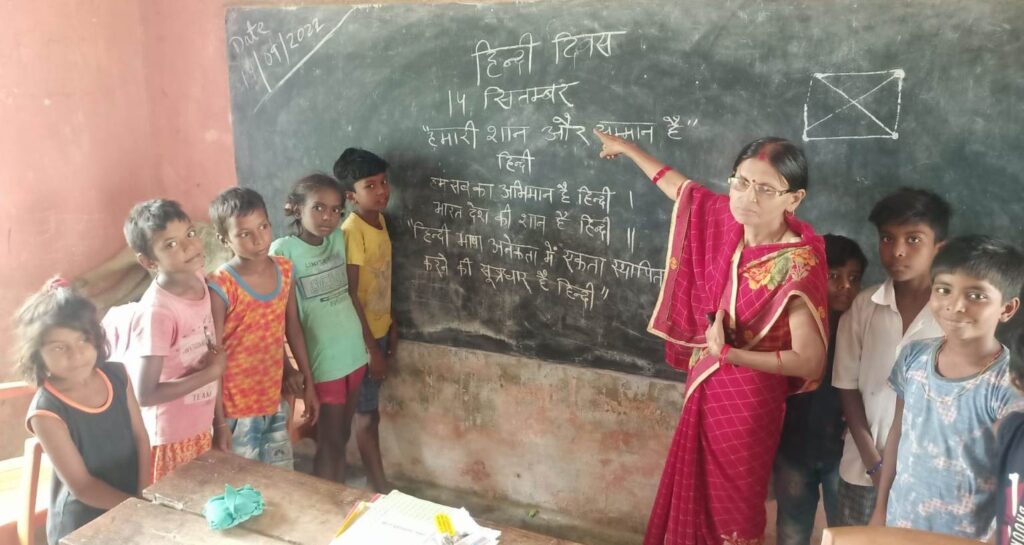 Date
/09/2022
हिन्दी दिवस
14 सितम्बर
"हमारी शान और सम्मान है"
हिन्दी
हम सब का अभिमान है हिन्दी ।
भारत देश की शान है हिन्दी ॥
"हिन्दी भाषा अनेकता में एकता स्थापित
करने की सूत्रधार है हिन्दी"
TEAM